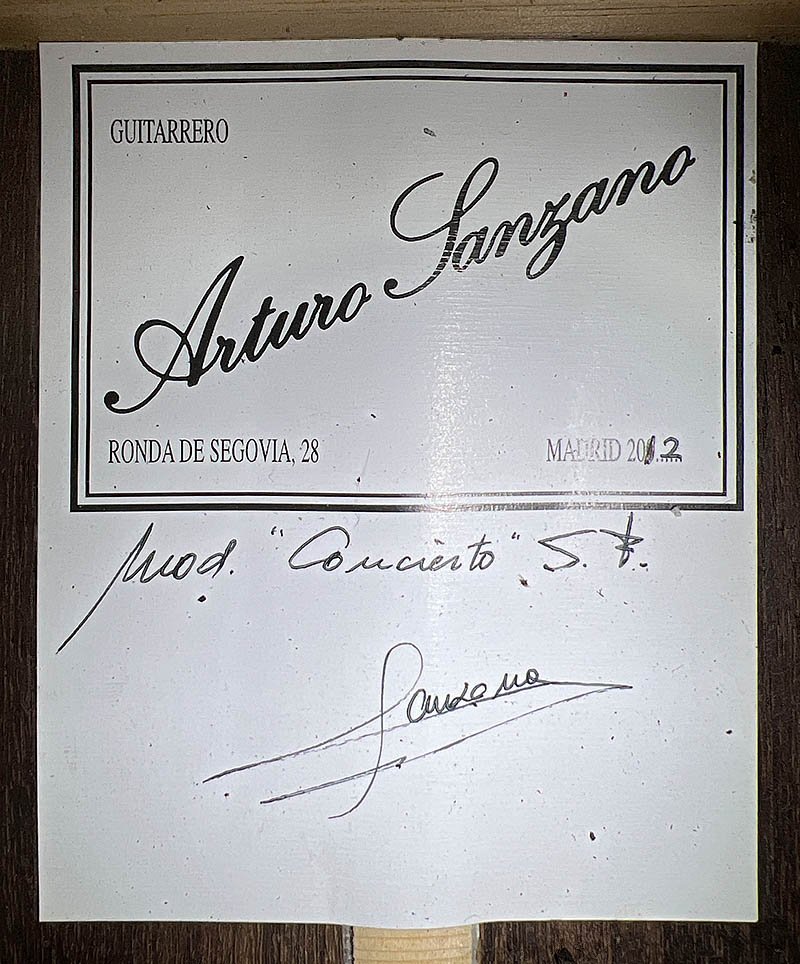 GUITARRERO
Arturo Sanzano
RONDA DE SEGOVIA, 28 MADRID 2012
Mod. "Concierto" S.
Sanzano